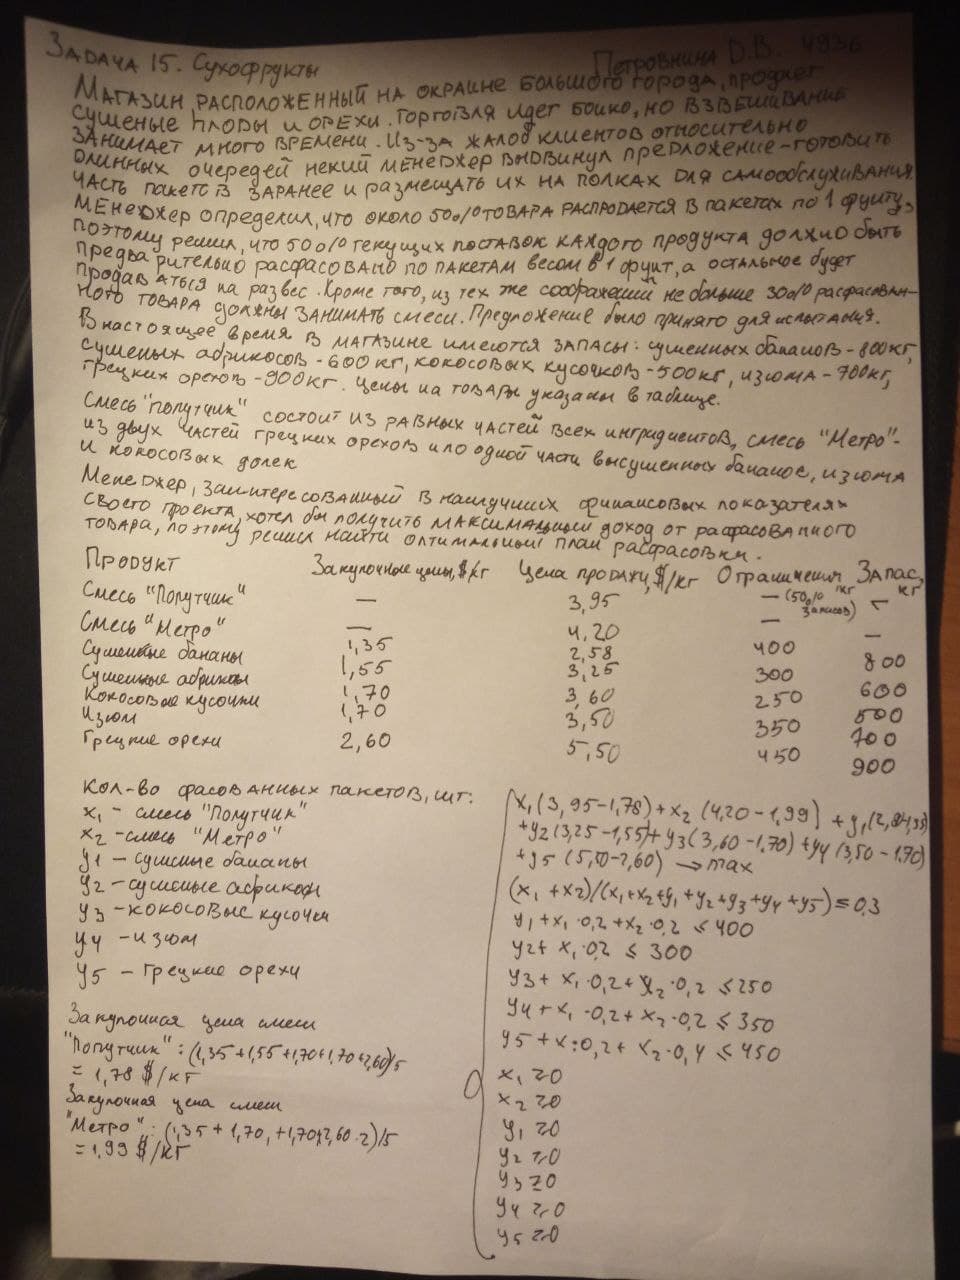 Задача 15. Сухофрукты Петровнина D.B. 4936
Магазин, расположенный на окраине большого города, продает
сушеные плоды и орехи. Торговля идет бойко, но взвешивание
занимает много времени. Из-за жалоб клиентов относительно
длинных очередей некий менеджер выдвинул предложение - готовить
часть пакетов заранее и размещать их на полках для самообслуживания.
Менеджер определил, что около 50% товара распродается в пакетах по 1 фунту,
поэтому решил, что 50% текущих поставок каждого продукта должно быть
предварительно расфасовано по пакетам весом в 1 фунт, а остальное будет
продаваться на развес. Кроме того, из тех же соображений не больше 30% расфасован-
ного товара должны занимать смеси. Предложение было принято для испытания.
В настоящее время в магазине имеются запасы: сушенных бананов - 800 кг,
сушеных абрикосов - 600 кг, кокосовых кусочков - 500 кг, изюма - 700 кг,
грецких орехов - 900 кг. Цены на товары указаны в таблице.
Смесь "Попутчик" состоит из равных частей всех ингридиентов, смесь "Метро" -
из двух частей грецких орехов и по одной части высушенных бананов, изюма
и кокосовых долек
Менеджер, заинтересованный в наилучших финансовых показателях
своего проекта, хотел бы получить максимальный доход от расфасованного
товара, поэтому решил найти оптимальный план расфасовки.
Продукт Закупочные цены, $/кг Цена продажи, $/кг Ограничения кг (50% запасов) Запас, кг
Смесь "Попутчик" — 3,95 — -
Смесь "Метро" — 4,20 — -
Сушенные бананы 1,35 2,58 400 800
Сушенные абрикосы 1,55 3,25 300 600
Кокосовые кусочки 1,70 3,60 250 500
Изюм 1,70 3,50 350 700
Грецкие орехи 2,60 5,50 450 900
Кол-во фасованных пакетов, шт:
x1 - смесь "Попутчик"
x2 - смесь "Метро"
y1 - сушеные бананы
y2 - сушеные абрикосы
y3 - кокосовые кусочки
y4 - изюм
y5 - грецкие орехи
Закупочная цена смеси
"Попутчик": (1,35+1,55+1,70+1,70+2,60)/5
= 1,78 $/кг
Закупочная цена смеси
"Метро": (1,35 + 1,70, +1,70+2,60·2)/5
= 1,99 $/кг
x1(3,95-1,78) + x2(4,20-1,99) + y1
+y2(3,25-1,55)+ y3(3,60-1,70) + y4(3,50-1,70)
+y5(5,50-2,60) → max
(x1+x2)/(x1+x2+y1+y2+y3+y4+y5) ≤ 0,3
y1+x1·0,2+x2·0,2 ≤ 400
y2+ x1·0,2 ≤ 300
y3+ x1·0,2+ x2·0,2 ≤ 250
y4+x1·0,2+x2·0,2 ≤ 350
y5+x1·0,2+ x2·0,4 ≤ 450
x1 ≥0
x2 ≥0
y1 ≥0
y2 ≥0
y3 ≥0
y4 ≥0
y5 ≥0